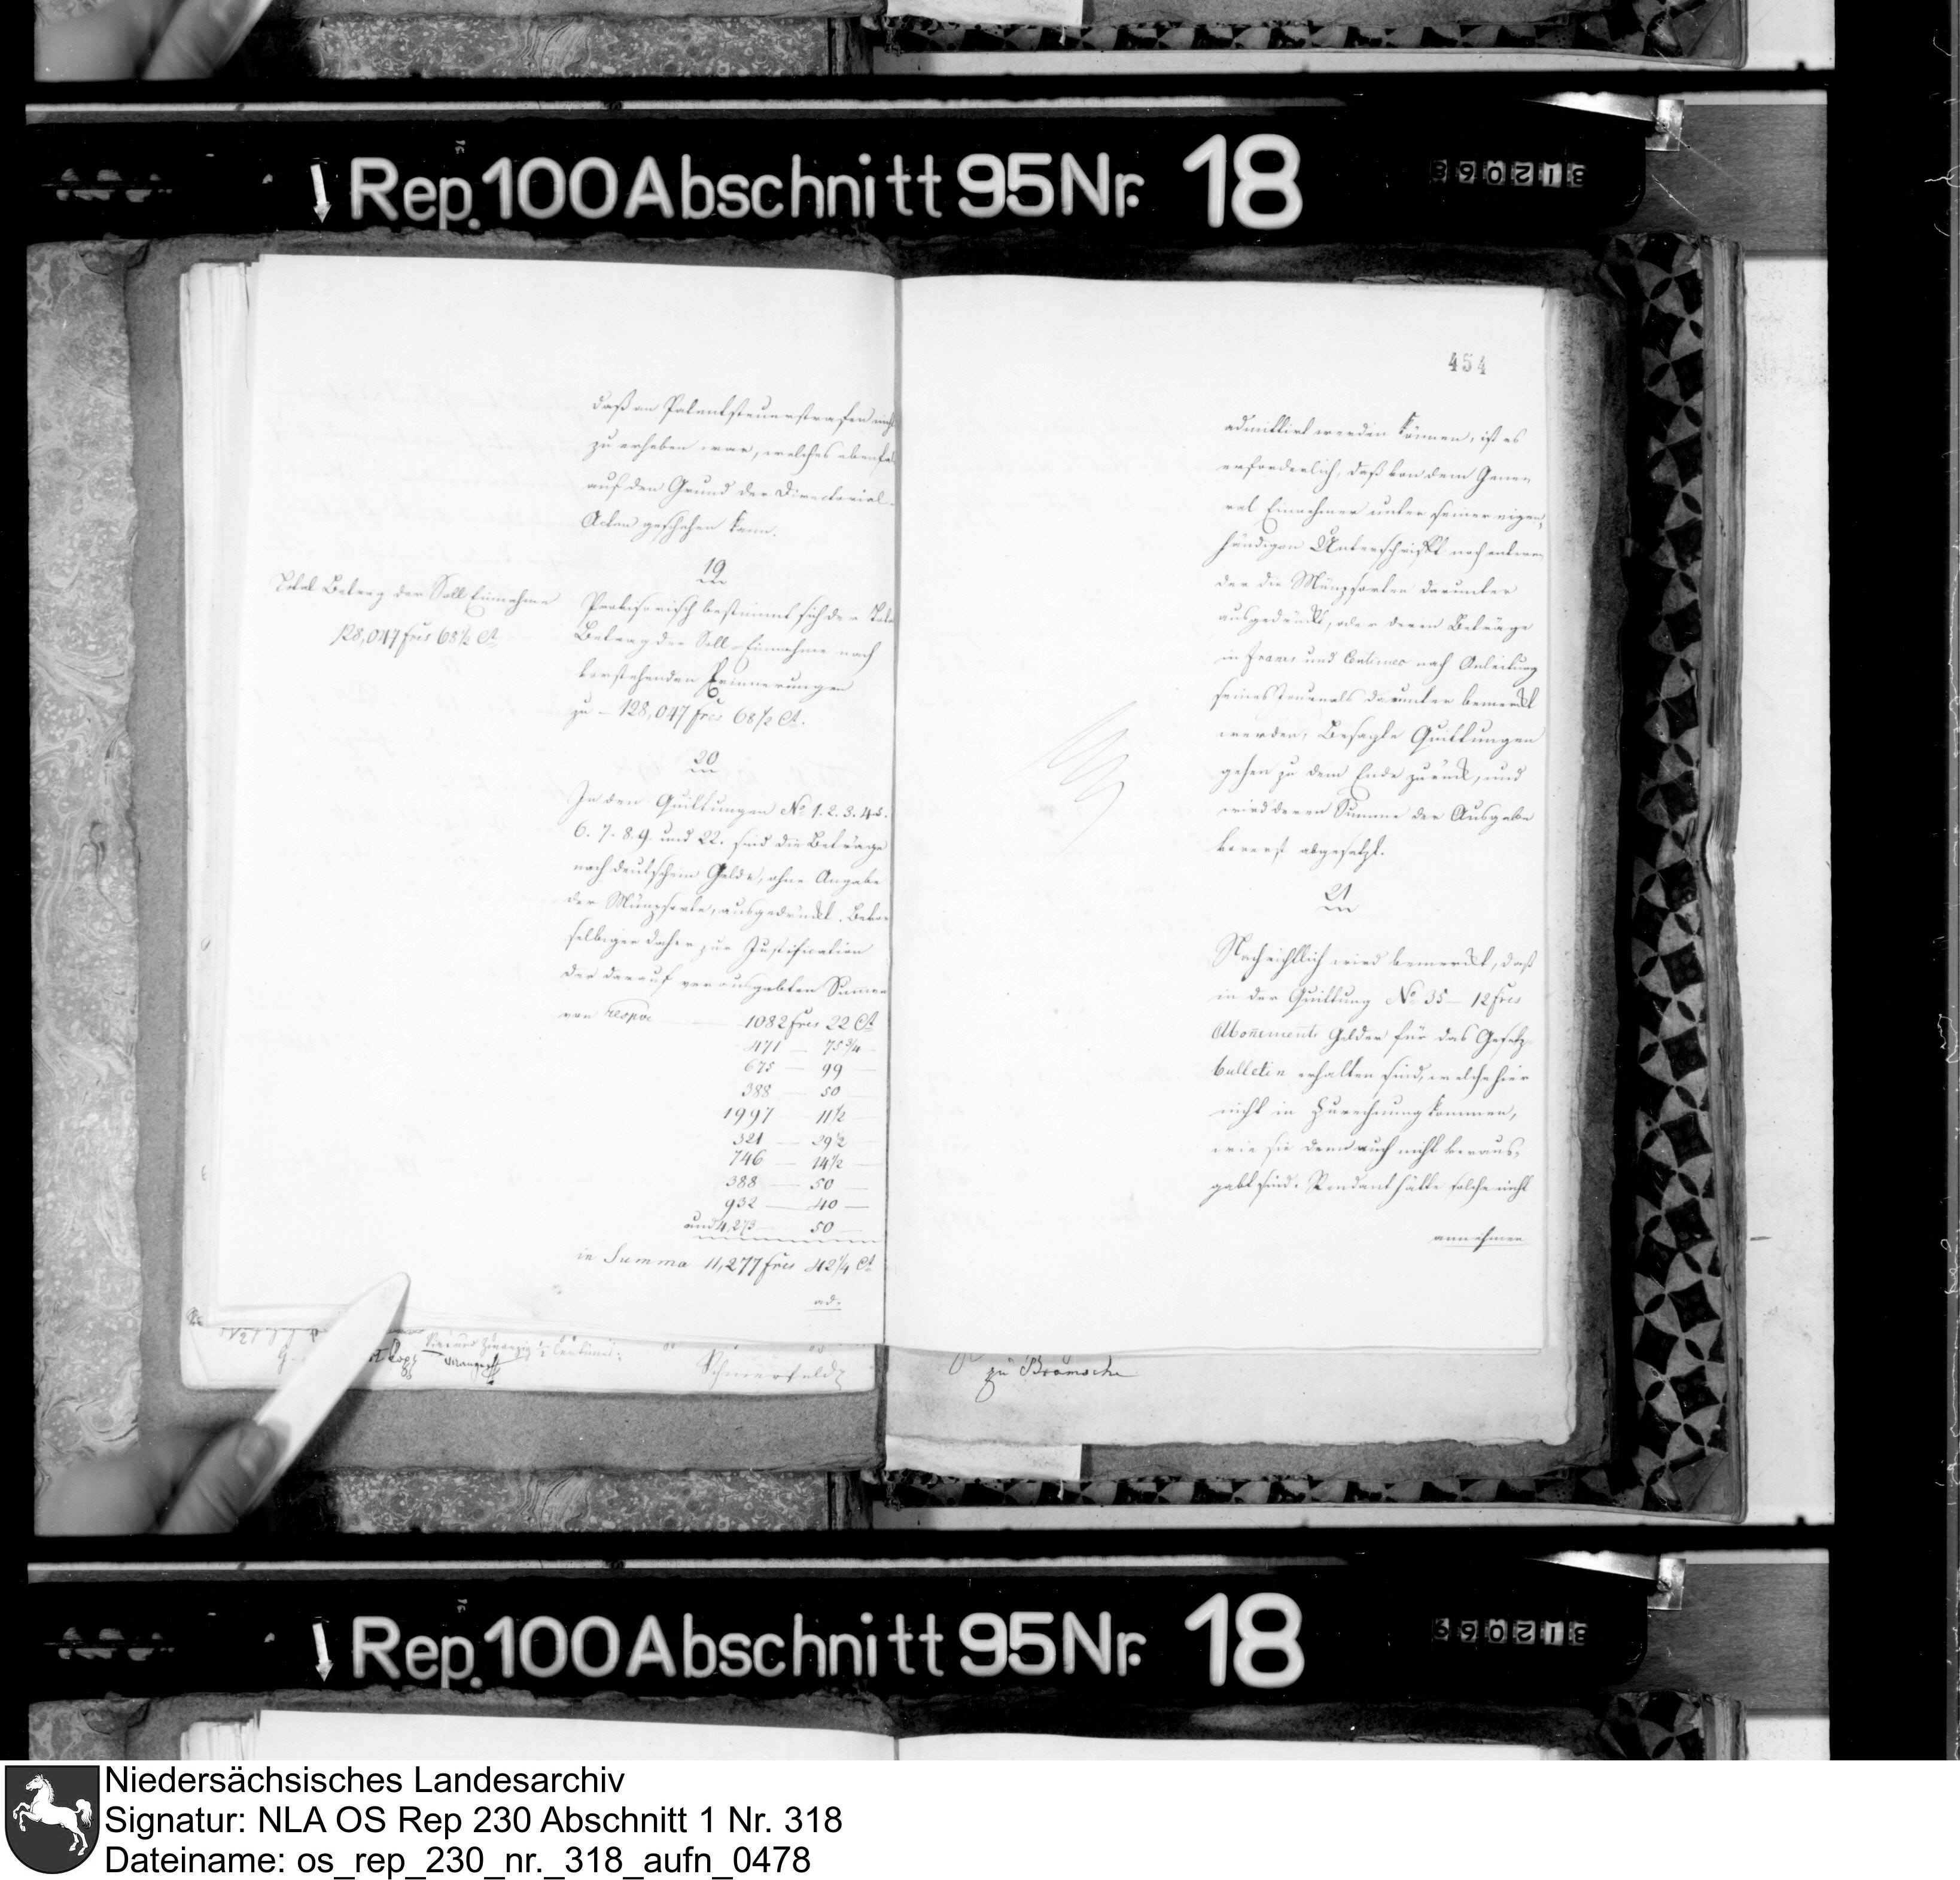 Rep. 100 Abschnitt 95 Nr. 18
312068
daß an Patentsteuerstrafen nicht
zu erheben war, welches ebenfals
auf den Grund der Directorial-
Acten geschehen kann.
19
Total Betrag der Soll Einnahme
128,047 frcs 68½ Ct
Provisorisch bestimmt sich der Total
Betrag der Soll-Einnahme nach
vorstehenden Erinnerungen
zu - 128,047 frcs 68½ Ct.
20
In den Quittungen No 1. 2. 3. 4. 5.
6. 7. 8. 9. und 22. sind die Beträge
nach deutschem Gelde, ohne Angabe
der Münzsorte, ausgedrückt. Bevor
selbiger daher zur Justification
der darauf verausgabten Summen
von respve 1082 frcs 22 Ct
471 — 75¾ —
675 — 99 —
388 — 50 —
1997 — 11½ —
321 — 29½ —
746 — 14½ —
388 — 50 —
932 — 40 —
und 4,273 — 50 —
in Summa 11,277 frcs 42¼ Ct
ad-
454
admittirt werden können, ist es
erforderlich, daß von dem Gene-
ral Einnehmer unter seiner eigen-
händigen Unterschrift noch entwe-
der die Münzsorten darunter
ausgedrückt, oder deren Beträge
in Francs und Centimes nach Anleitung
seines Journals darunter bemerkt
werden, Besagte Quittungen
gehen zu dem Ende zurück, und
wird deren Summe der Ausgabe
vorerst abgesetzt.
21
Nachrichtlich wird bemerkt, daß
in der Quittung No 35 - 12 frcs
Abonnements Gelder für das Gesetz-
bulletin erhalten sind, welche hier
nicht in Zurechnung kommen,
wie sie denn auch nicht veraus-
gabt sind. Rendant hätte solche nicht
annehmen
Centimes
zu Bramsche
Rep. 100 Abschnitt 95 Nr. 18
312069
Niedersächsisches Landesarchiv
Signatur: NLA OS Rep 230 Abschnitt 1 Nr. 318
Dateiname: os_rep_230_nr._318_aufn_0478